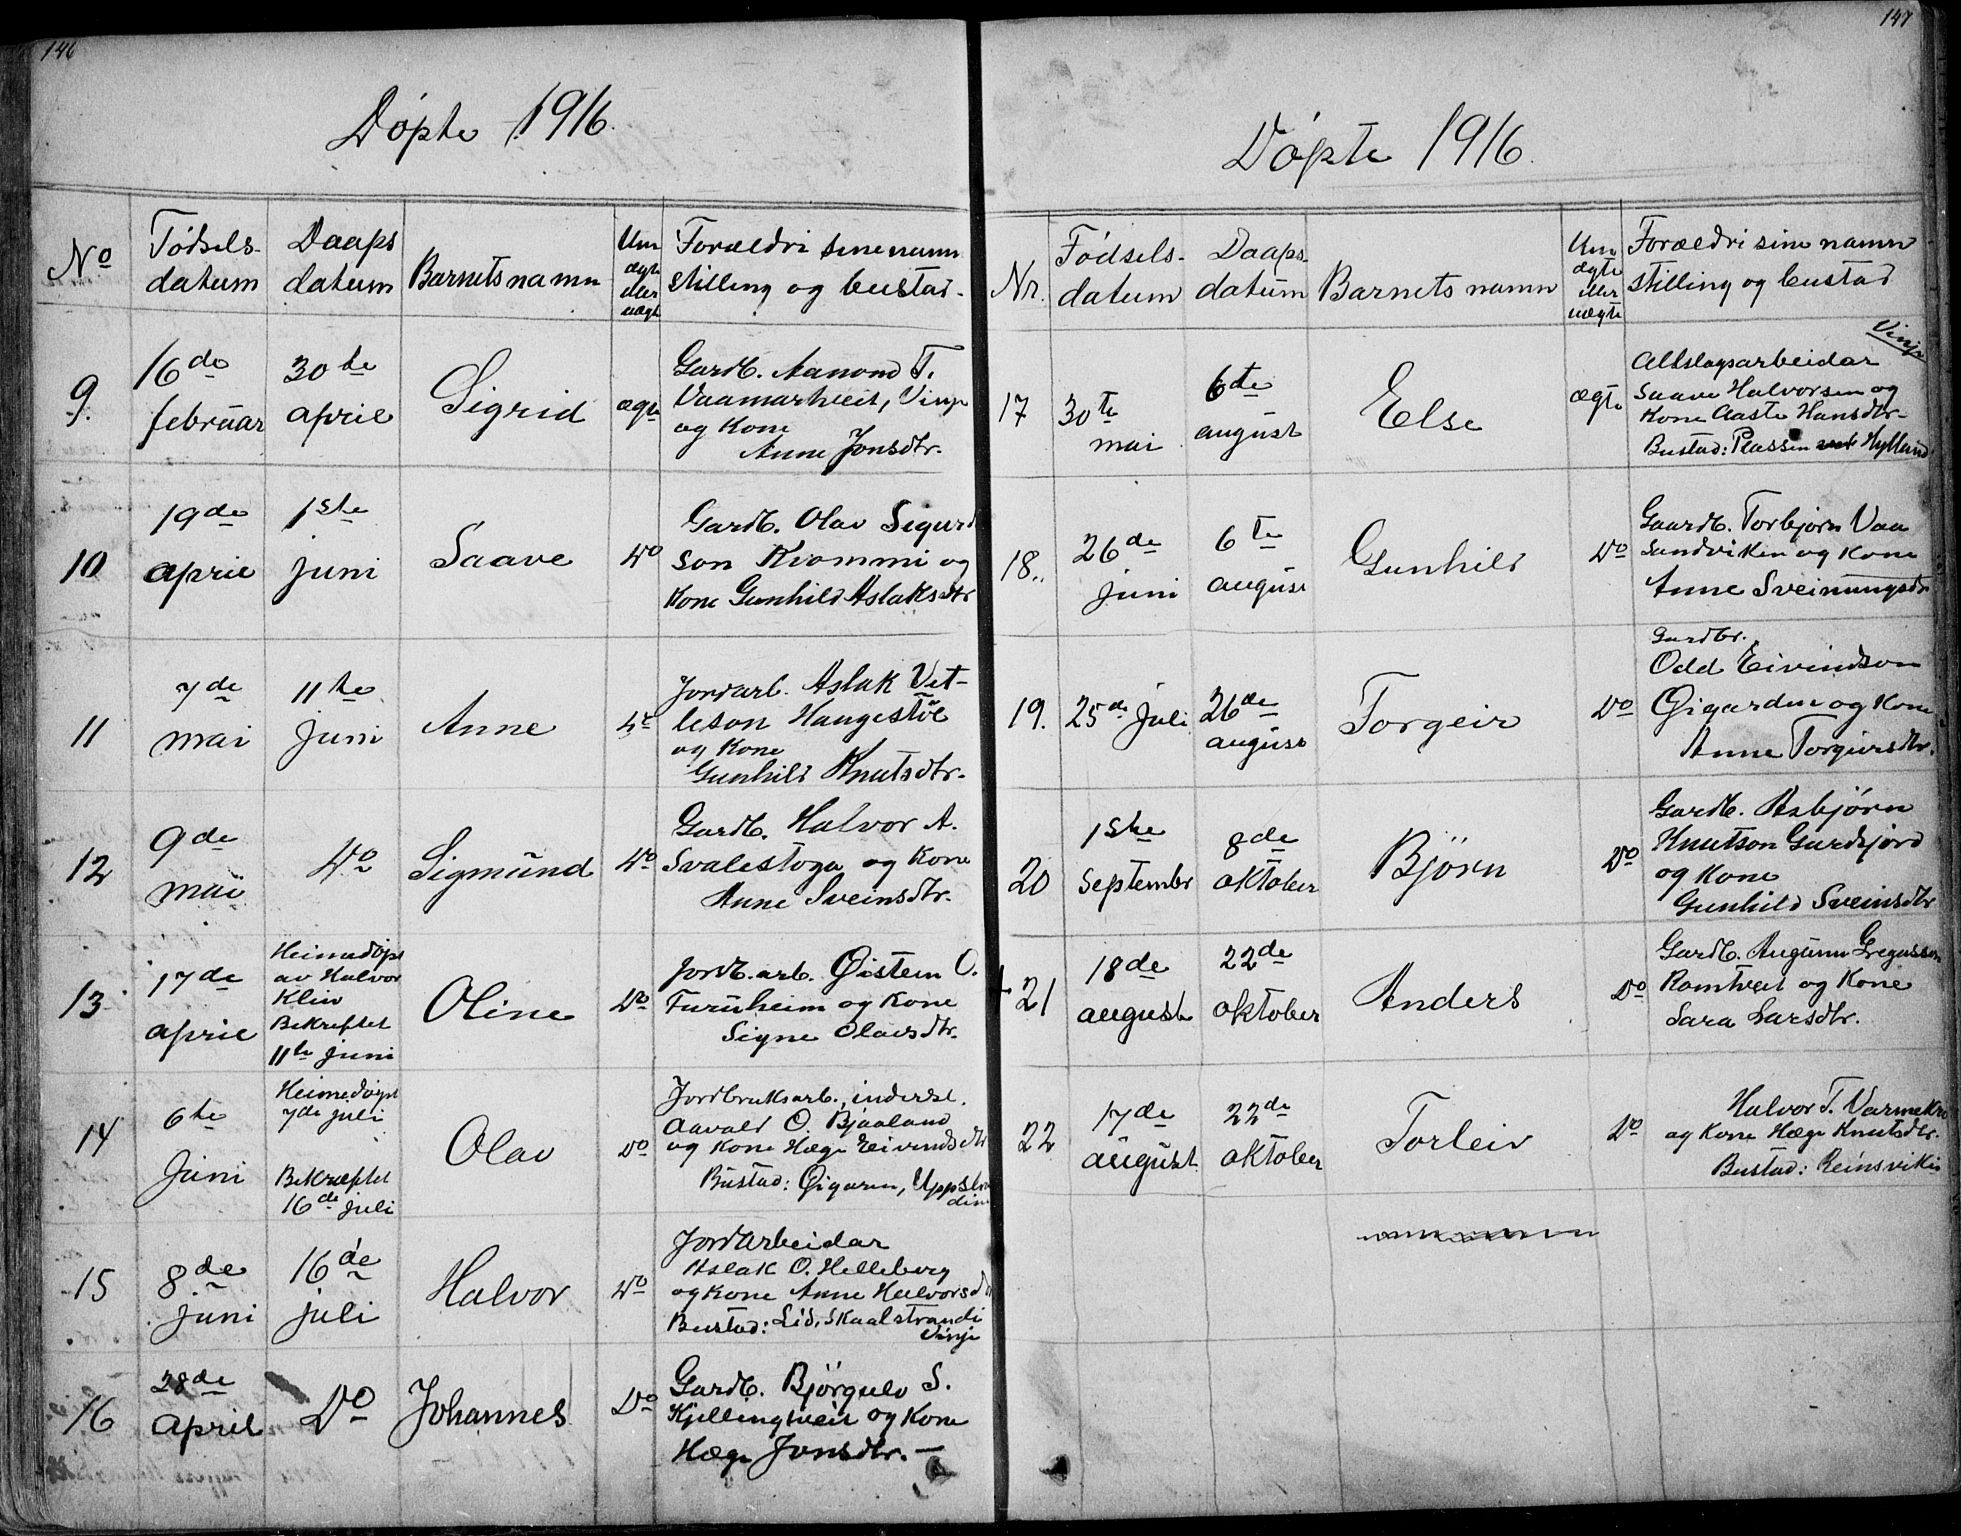 146
Døpte 1916.
No
Fødsels-
datum
Daaps
datum
Barnets namn
Um
ægte
eller
uægte
Forældri sine namn
stilling og bustad.
9.
16de
februar
30te
april
Sigrid
ægte
Gardb. Aamund T.
Vaamartveit, Vinje
og Kone
Anne Jonsdtr.
10
19de
april
1ste
juni
Saave
Do
Gardb. Olav Sigurd
son Kvammi og
Kone Gunhild Aslaksdtr
11
7de
mai
11te
juni
Anne
Do
Jordarb. Aslak Vet-
leson Haugestøl
og Kone
Gunhild Knutsdtr.
12
9de
mai
Do
Sigmund
Do
Gardb. Halvor A.
Svalestoga og Kone
Anne Sveinsdtr.
13
17de
april
Heimedøpt
av Halvor
Kliv
Bekreftet
11te juni
Oline
Do
Jordb.arb. Øistein O.
Furuheim og Kone
Signe Olavsdtr.
14
6te
Juni
Heimedøpt
7de juli
Bekræftet
16de juli
Olav
Do
Jordbruksarb., inderst.
Aavald O. Bjaaland
og Kone Hæge Eivindsdtr
Bustad: Øigaren,
15
8de
juni
16de
juli
Halvor
Do
Jordarbeidar
Aslak O. Helleberg
og Kone Anne Halvorsd
Bustad: Lid, Skaalstrandi
Vinje
16
28de
april
Do
Johannes
Do
Gardb. Bjørgulv S.
Kjellingtveit og Kone
Hæge Jonsdtr. —
147
Døpte 1916.
Nr.
Fødsels-
datum
Daaps-
datum
Barnets namn
Um
ægte
eller
uægte
Forældri sine namn
stilling og bustad
17
30te
mai
6te
august
Else
ægte
Vinje
Altslagsarbeidar
Saave Halvorsen og
Kone Aaste Hansdtr-
Bustad: Plassen Hylland
18.
26de
juni
6te
august
Gunhild
Do
Gaardb. Torbjørn Vaa
Sandviken og Kone
Anne Sveinungsdtr
19.
25de juli
26de
august
Torgeir
Do
Gardbr.
Odd Eivindson
Øigarden og Kone
Anne Torgeirsdtr.
20
1ste
septembr
8de
oktober
Bjørn
Do
Gardb. Asbjørn
Knutson Gardsjord
og Kone
Gunhild Sveinsdtr
+ 21
18de
august
22de
oktober
Anders
Do
Gardb. Augunn Gregussen
Romtveit og Kone
Sara Larsdtr.
22
17de
august
22de
oktober
Torleiv
Do
Halvor T.
og Kone Hæge Knutsdtr.
Bustad: Reinsvikin